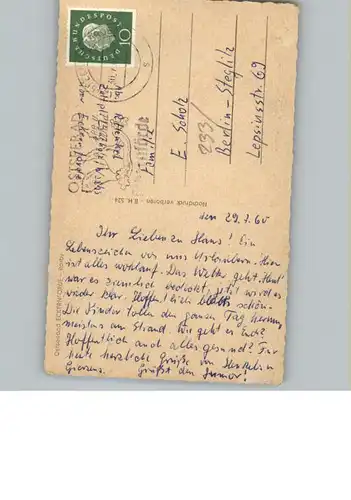 DEUTSCHE BUNDESPOST
10
OSTSEEBAD
Familie
E. Scholz
Berlin-Steglitz
Lepsiusstr. 69
Nachdruck verboten
den 29.7.60
Ihr Lieben zu Haus! Ein
Lebenszeichen von uns Urlaubern. Hier
ist alles wohlauf. Das Wetter geht. Heut'
war es ziemlich bedeckt, jetzt wird es
wieder klar. Hoffentlich bleibt's schön.
Die Kinder tollen den ganzen Tag herum,
meistens am Strand. Wie geht es Euch?
Hoffentlich auch alles gesund? Für
heute herzliche Grüße von
Grüßt den Junior!